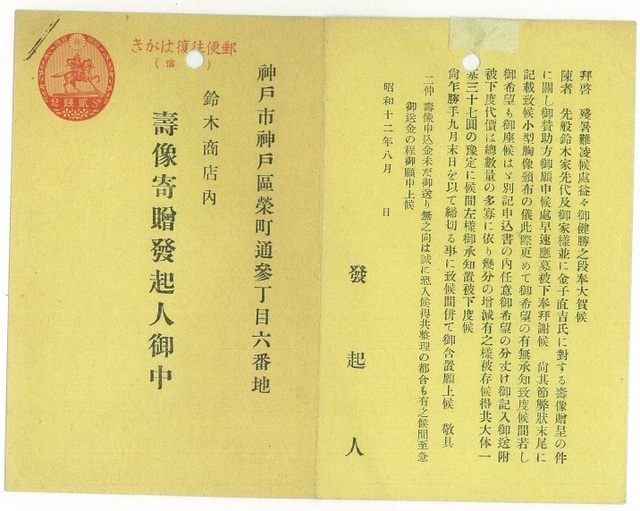 拜啓　殘暑難凌候處益々御健勝之段奉大賀候
陳者　先般鈴木家先代及御家樣並に金子直吉氏に對する壽像贈呈の件
に關し御賛助方御願申候處早速應募被下奉拜謝候　尙其節弊狀末尾に
記載致候小型胸像頒布の儀此際更めて御希望の有無承知致度候間若し
御希望も御座候はゞ別記申込書の内任意御希望の分丈け御記入御送附
被下度代價は總數量の多寡に依り幾分の增減有之樣被存候得共大体一
基三十七圓の豫定に候間左樣御承知置被下度候
尙乍勝手九月末日を以て締切る事に致候間併て御含置願上候　敬具
二伸　壽像申込金未だ御送り無之向は誠に恐入候得共整理の都合も有之候間至急
御送金の程御願申上候
昭和十二年八月　　日
發起人
郵便徃復はがき
（信）
2 貳錢 S
神戶市神戶區榮町通參丁目六番地
鈴木商店內
壽像寄贈發起人御中